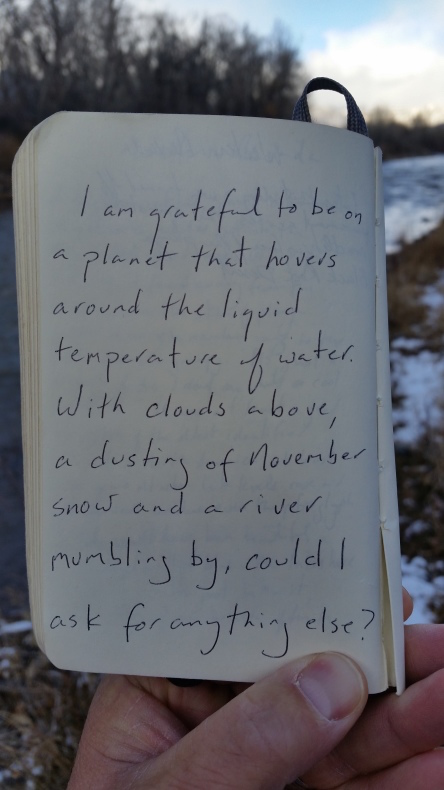 I am grateful to be on
a planet that hovers
around the liquid
temperature of water.
With clouds above,
a dusting of November
snow and a river
mumbling by, could I
ask for anything else?